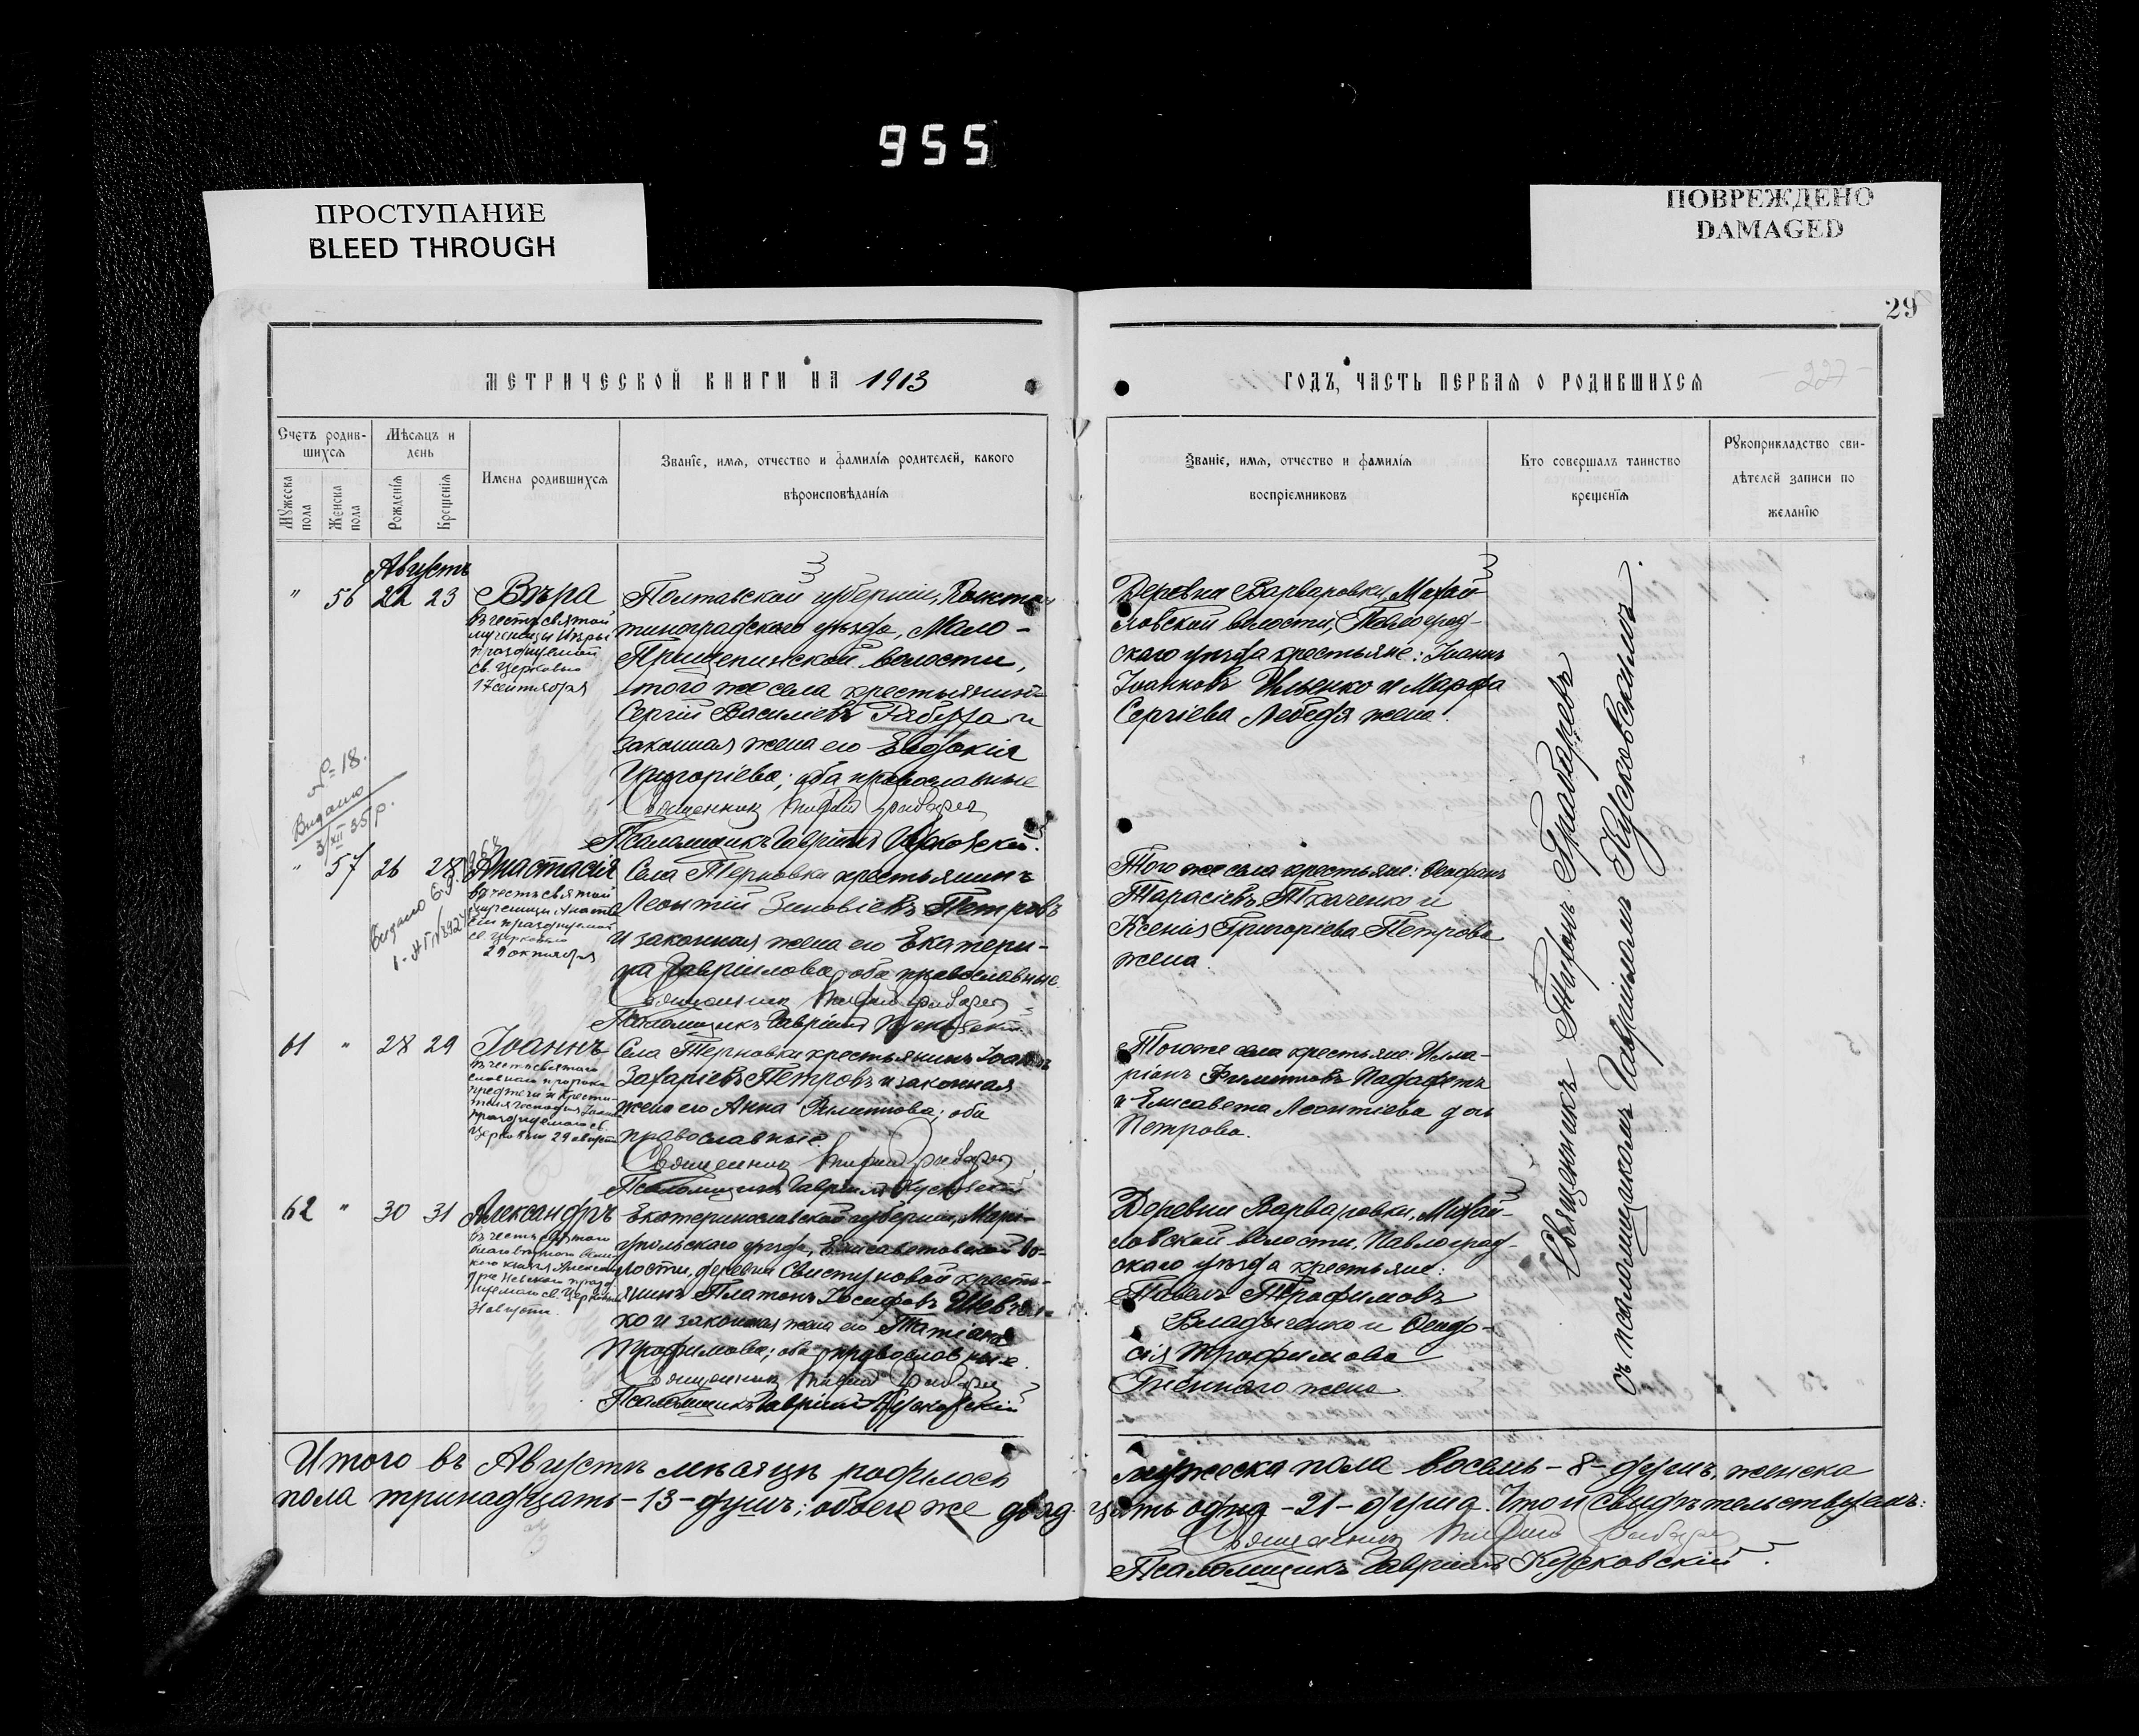 955
ПРОСТУПАНИЕ
BLEED THROUGH
ПОВРЕЖДЕНО
DAMAGED
29
227
МЕТРИЧЕСКОЙ КНИГИ НА 1913
ГОДЪ, ЧАСТЬ ПЕРВАЯ О РОДИВШИХСЯ
Счетъ родив-
шихся
Мужеска пола
Женска пола
Мѣсяцъ и
день
Рожденія
Крещенія
Имена родившихся
Званіе, имя, отчество и фамилія родителей, какого
вѣроисповѣданія
Званіе, имя, отчество и фамилія
воспріемниковъ
Кто совершалъ таинство
крещенія
Рукоприкладство сви-
дѣтелей записи по
желанію
Августъ
" 56 22 23 Вѣра
въ честь святой
мученицы Вѣры
празднуемой
св. Церковью
17 сентября
Полтавской губерніи, Констан-
тиноградскаго уѣзда, Мало-
Прищепинской волости,
того же села крестьянинъ
Сергій Василіевъ Рябуха и
законная жена его Евдокія
Григоріева; оба православные
Священникъ Тифонъ
Псаломщикъ Гавріилъ Кусковскій.
Деревни Варваровки, Михай-
ловской волости, Павлоград-
скаго уѣзда крестьяне: Іоаннъ
Іоанновъ Ильенко и Марфа
Сергіева Лебедя жена.
№ 18.
Видано
3/XII 35 р.
" 57 26 28 Анастасія
въ честь святой
мученицы Анаста-
сіи празднуемой
св. Церковью
29 октября
Видано
Села Терновки крестьянинъ
Леонтій Зиновіевъ Петровъ
и законная жена его Екатери-
на Гавріилова, оба православные.
Священникъ Тифонъ
Псаломщикъ Гавріилъ Кусковскій.
Того же села крестьяне: Ѳеофанъ
Тарасіевъ Ткаченко и
Ксенія Григоріева Петрова
жена.
61 " 28 29 Іоаннъ
въ честь святого
славнаго пророка
предтечи и крести-
теля Господня Іоанна
празднуемаго св.
Церковью 29 августа
Села Терновки крестьянинъ Іоаннъ
Захаріевъ Петровъ и законная
жена его Анна Филиппова; оба
православные.
Священникъ Тифонъ
Псаломщикъ Гавріилъ Кусковскій
Того же села крестьяне: Илла-
ріонъ Филипповъ
и Елисавета Леонтіева дочь
Петрова.
62 " 30 31 Александръ
въ честь святого
благовѣрнаго Вели-
каго князя Алексан-
дра Невскаго празд-
нуемаго св. Церковью
Августа.
Екатеринославской губерніи, Марі-
упольскаго уѣзда, Елисаветовской во-
лости, деревни Свистуновой кресть-
янинъ Платонъ Іосифовъ Шевчен-
ко и законная жена его Татіана
Трофимова; оба православные.
Священникъ Тифонъ
Псаломщикъ Гавріилъ Кусковскій
Деревни Варваровки, Михай-
ловской волости, Павлоград-
скаго уѣзда крестьяне:
Павелъ Трофимовъ
Владыченко и Ѳеодо-
сія Трофимова
жена.
Священникъ Тифонъ
съ псаломщикомъ Гавріиломъ Кусковскимъ.
Итого въ Августѣ мѣсяцѣ родилось мужеска пола восемь - 8 - душъ, женска
пола тринадцать - 13 - душъ; обоего же двадцать одна - 21 - душа. Что и свидѣтельствуемъ:
Священникъ Тифонъ
Псаломщикъ Гавріилъ Кусковскій.